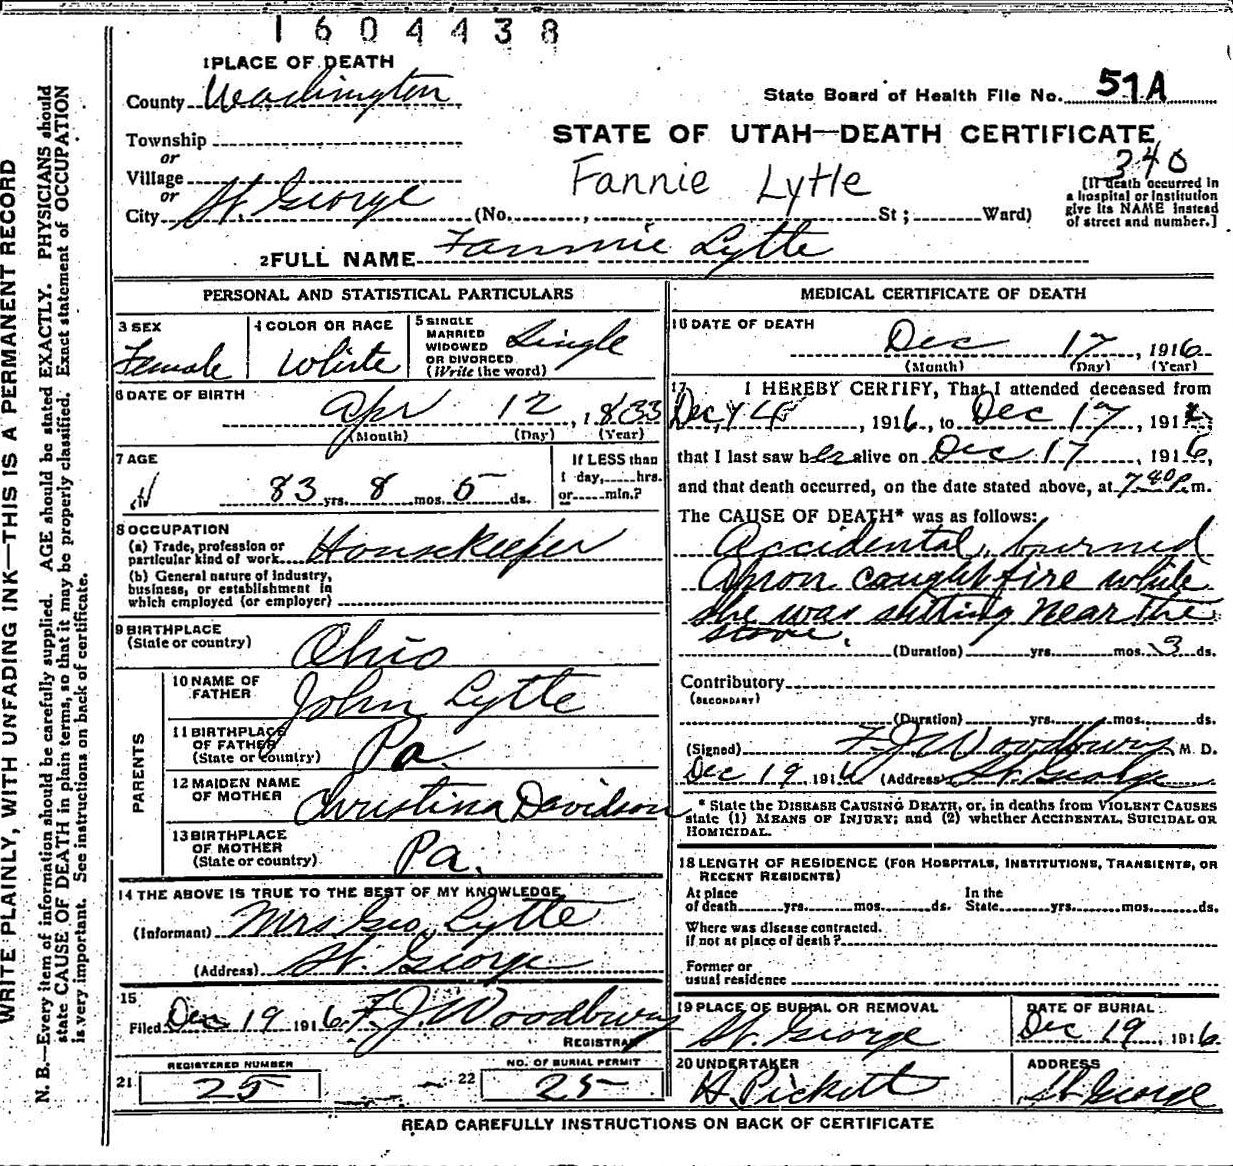 1604438
1 PLACE OF DEATH
County Washington
State Board of Health File No. 51A
Township
or
STATE OF UTAH—DEATH CERTIFICATE
340
Village
or
Fannie Lytle
City St. George (No. , St ; Ward)
[If death occurred in
a hospital or institution
give its NAME instead
of street and number.]
2 FULL NAME Fannie Lytte
PERSONAL AND STATISTICAL PARTICULARS
3 SEX
Female
4 COLOR OR RACE
White
5 SINGLE
MARRIED
WIDOWED
OR DIVORCED
(Write the word)
Single
6 DATE OF BIRTH
Apr 12, 1833
(Month) (Day) (Year)
7 AGE
83 yrs. 8 mos. 5 ds.
If LESS than
1 day, hrs.
or min.?
8 OCCUPATION
(a) Trade, profession or
particular kind of work Housekeeper
(b) General nature of industry,
business, or establishment in
which employed (or employer)
9 BIRTHPLACE
(State or country) Ohio
PARENTS
10 NAME OF
FATHER John Lytte
11 BIRTHPLACE
OF FATHER
(State or country) Pa.
12 MAIDEN NAME
OF MOTHER Christina Davidson
13 BIRTHPLACE
OF MOTHER
(State or country) Pa.
14 THE ABOVE IS TRUE TO THE BEST OF MY KNOWLEDGE
(Informant) Mrs Geo. Lytte
(Address) St. George
15
Filed Dec 19 1916 F. J. Woodbury
REGISTRAR
REGISTERED NUMBER
21 25
NO. OF BURIAL PERMIT
22 25
MEDICAL CERTIFICATE OF DEATH
16 DATE OF DEATH
Dec 17, 1916
(Month) (Day) (Year)
17 I HEREBY CERTIFY, That I attended deceased from
Dec, 14, 1916, to Dec 17, 191
that I last saw her alive on Dec 17, 1916,
and that death occurred, on the date stated above, at 7 40 P. m.
The CAUSE OF DEATH* was as follows:
Accidental, burned
Apron caught fire while
she was sitting near the
stove.
(Duration) yrs. mos. 3 ds.
Contributory
(SECONDARY)
(Duration) yrs. mos. ds.
(Signed) F. J. Woodbury M. D.
Dec 19 1916 (Address) St. George
* State the DISEASE CAUSING DEATH, or, in deaths from VIOLENT CAUSES
state (1) MEANS OF INJURY; and (2) whether ACCIDENTAL, SUICIDAL OR
HOMICIDAL.
18 LENGTH OF RESIDENCE (FOR HOSPITALS, INSTITUTIONS, TRANSIENTS, OR
RECENT RESIDENTS)
At place
of death yrs. mos. ds.
In the
State yrs. mos. ds.
Where was disease contracted.
if not at place of death?
Former or
usual residence
19 PLACE OF BURIAL OR REMOVAL
St. George
DATE OF BURIAL
Dec 19, 1916
20 UNDERTAKER
H. Pickett
ADDRESS
St George
READ CAREFULLY INSTRUCTIONS ON BACK OF CERTIFICATE
WRITE PLAINLY, WITH UNFADING INK—THIS IS A PERMANENT RECORD
N. B.—Every item of information should be carefully supplied. AGE should be stated EXACTLY. PHYSICIANS should
state CAUSE OF DEATH in plain terms, so that it may be properly classified. Exact statement of OCCUPATION
is very important. See instructions on back of certificate.